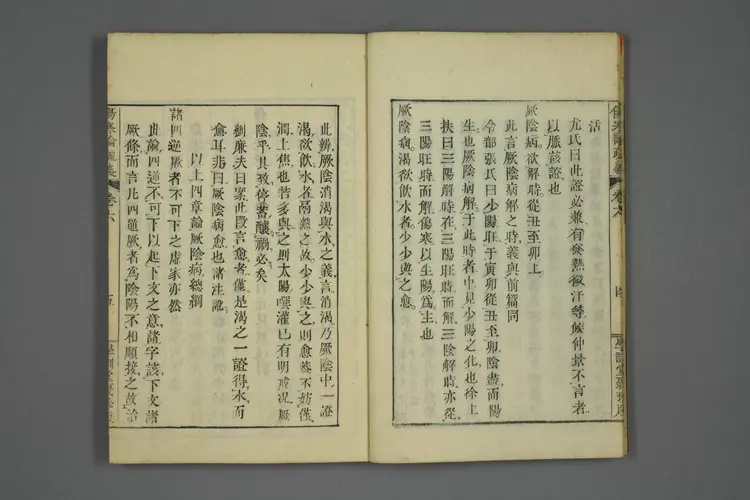 活
尤氏曰此證必兼有發熱微汗等候仲景不言者
以脈該證也
厥陰病欲解時從丑至卯上
此言厥陰病解之時義與前篇同
令韶張氏曰少陽旺于寅卯從丑至卯陰盡而陽
生也厥陰病解于此時者中見少陽之化也徐上
扶曰三陽解時在三陽旺時而解三陰解時亦從
三陽旺時而解傷寒以生陽爲主也
厥陰病渴欲飲水者少少與之愈
傷寒論疏義 卷六
此辨厥陰消渴與水之義言消渴乃厥陰中一證
渴欲飲水者鬲燥之故少少與之則愈蓋不妨僅
潤上焦也若多與之則太陽噀灌已有明戒況厥
陰乎其致停蓄釀禍必矣
劉廉夫曰案此段言愈者僅是渴之一證得水而
愈耳非曰厥陰病愈也諸注訛
以上四章論厥陰病總綱
諸四逆厥者不可下之虛家亦然
此論四逆不可下以起下文之意諸字該下文諸
厥條而言凡四逆厥者爲陰陽不相順接之故治
傷寒論疏義 卷六 五